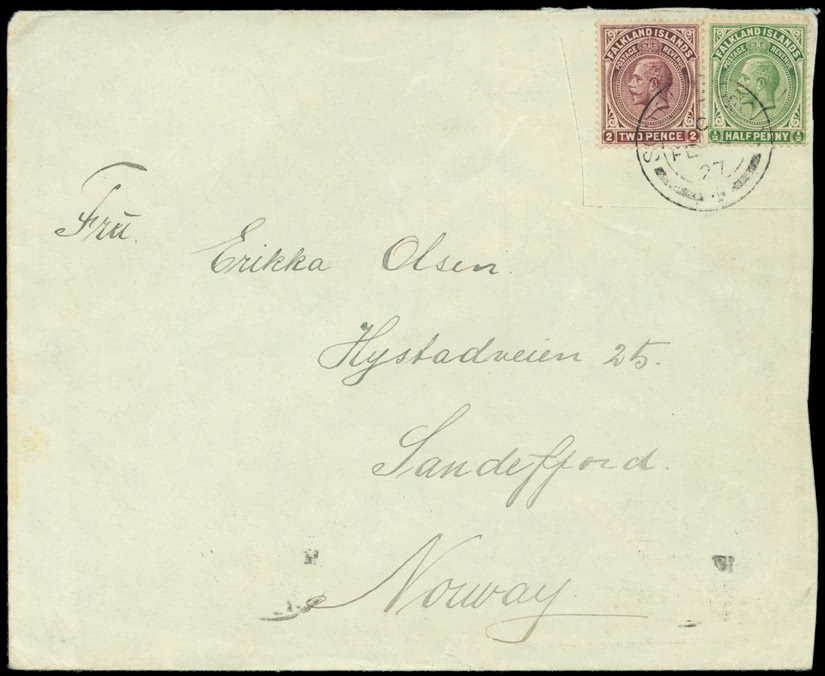 FALKLAND ISLANDS
POSTAGE REVENUE
2 TWO PENCE 2
FALKLAND ISLANDS
POSTAGE REVENUE
½ HALF PENNY ½
27
Frū.
Erikka Olsen.
Hystadveien 25.
Sandefjord.
Norway.